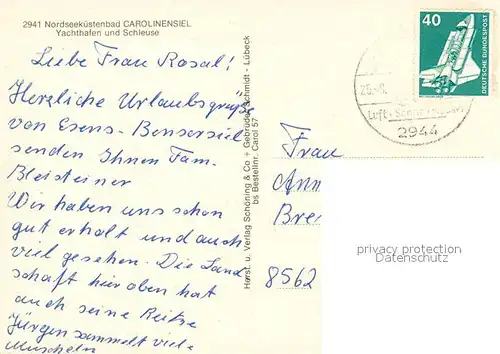 2941 Nordseeküstenbad CAROLINENSIEL
Yachthafen und Schleuse
Liebe Frau Rosal!
Herzliche Urlaubsgrüße
von Esens-Bensersiel
senden Ihnen Fam.
Bleisteiner
Wir haben uns schon
gut erholt und auch
viel gesehen. Die Land
schaft hier oben hat
auch seine Reitze
Jürgen sammelt viele
Muscheln
Horst. u. Verlag Schöning & Co + Gebrüder Schmidt - Lübeck
bs Bestellnr. Carol 57
40
DEUTSCHE BUNDESPOST
25.-8.
Luft
2944
Frau
Ann
Bre
8562
privacy protection
Datenschutz